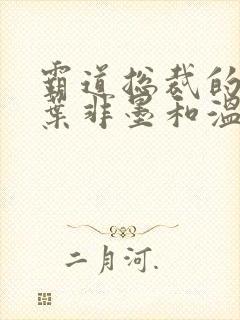 霸道总裁的
叶非墨和温
二月河.